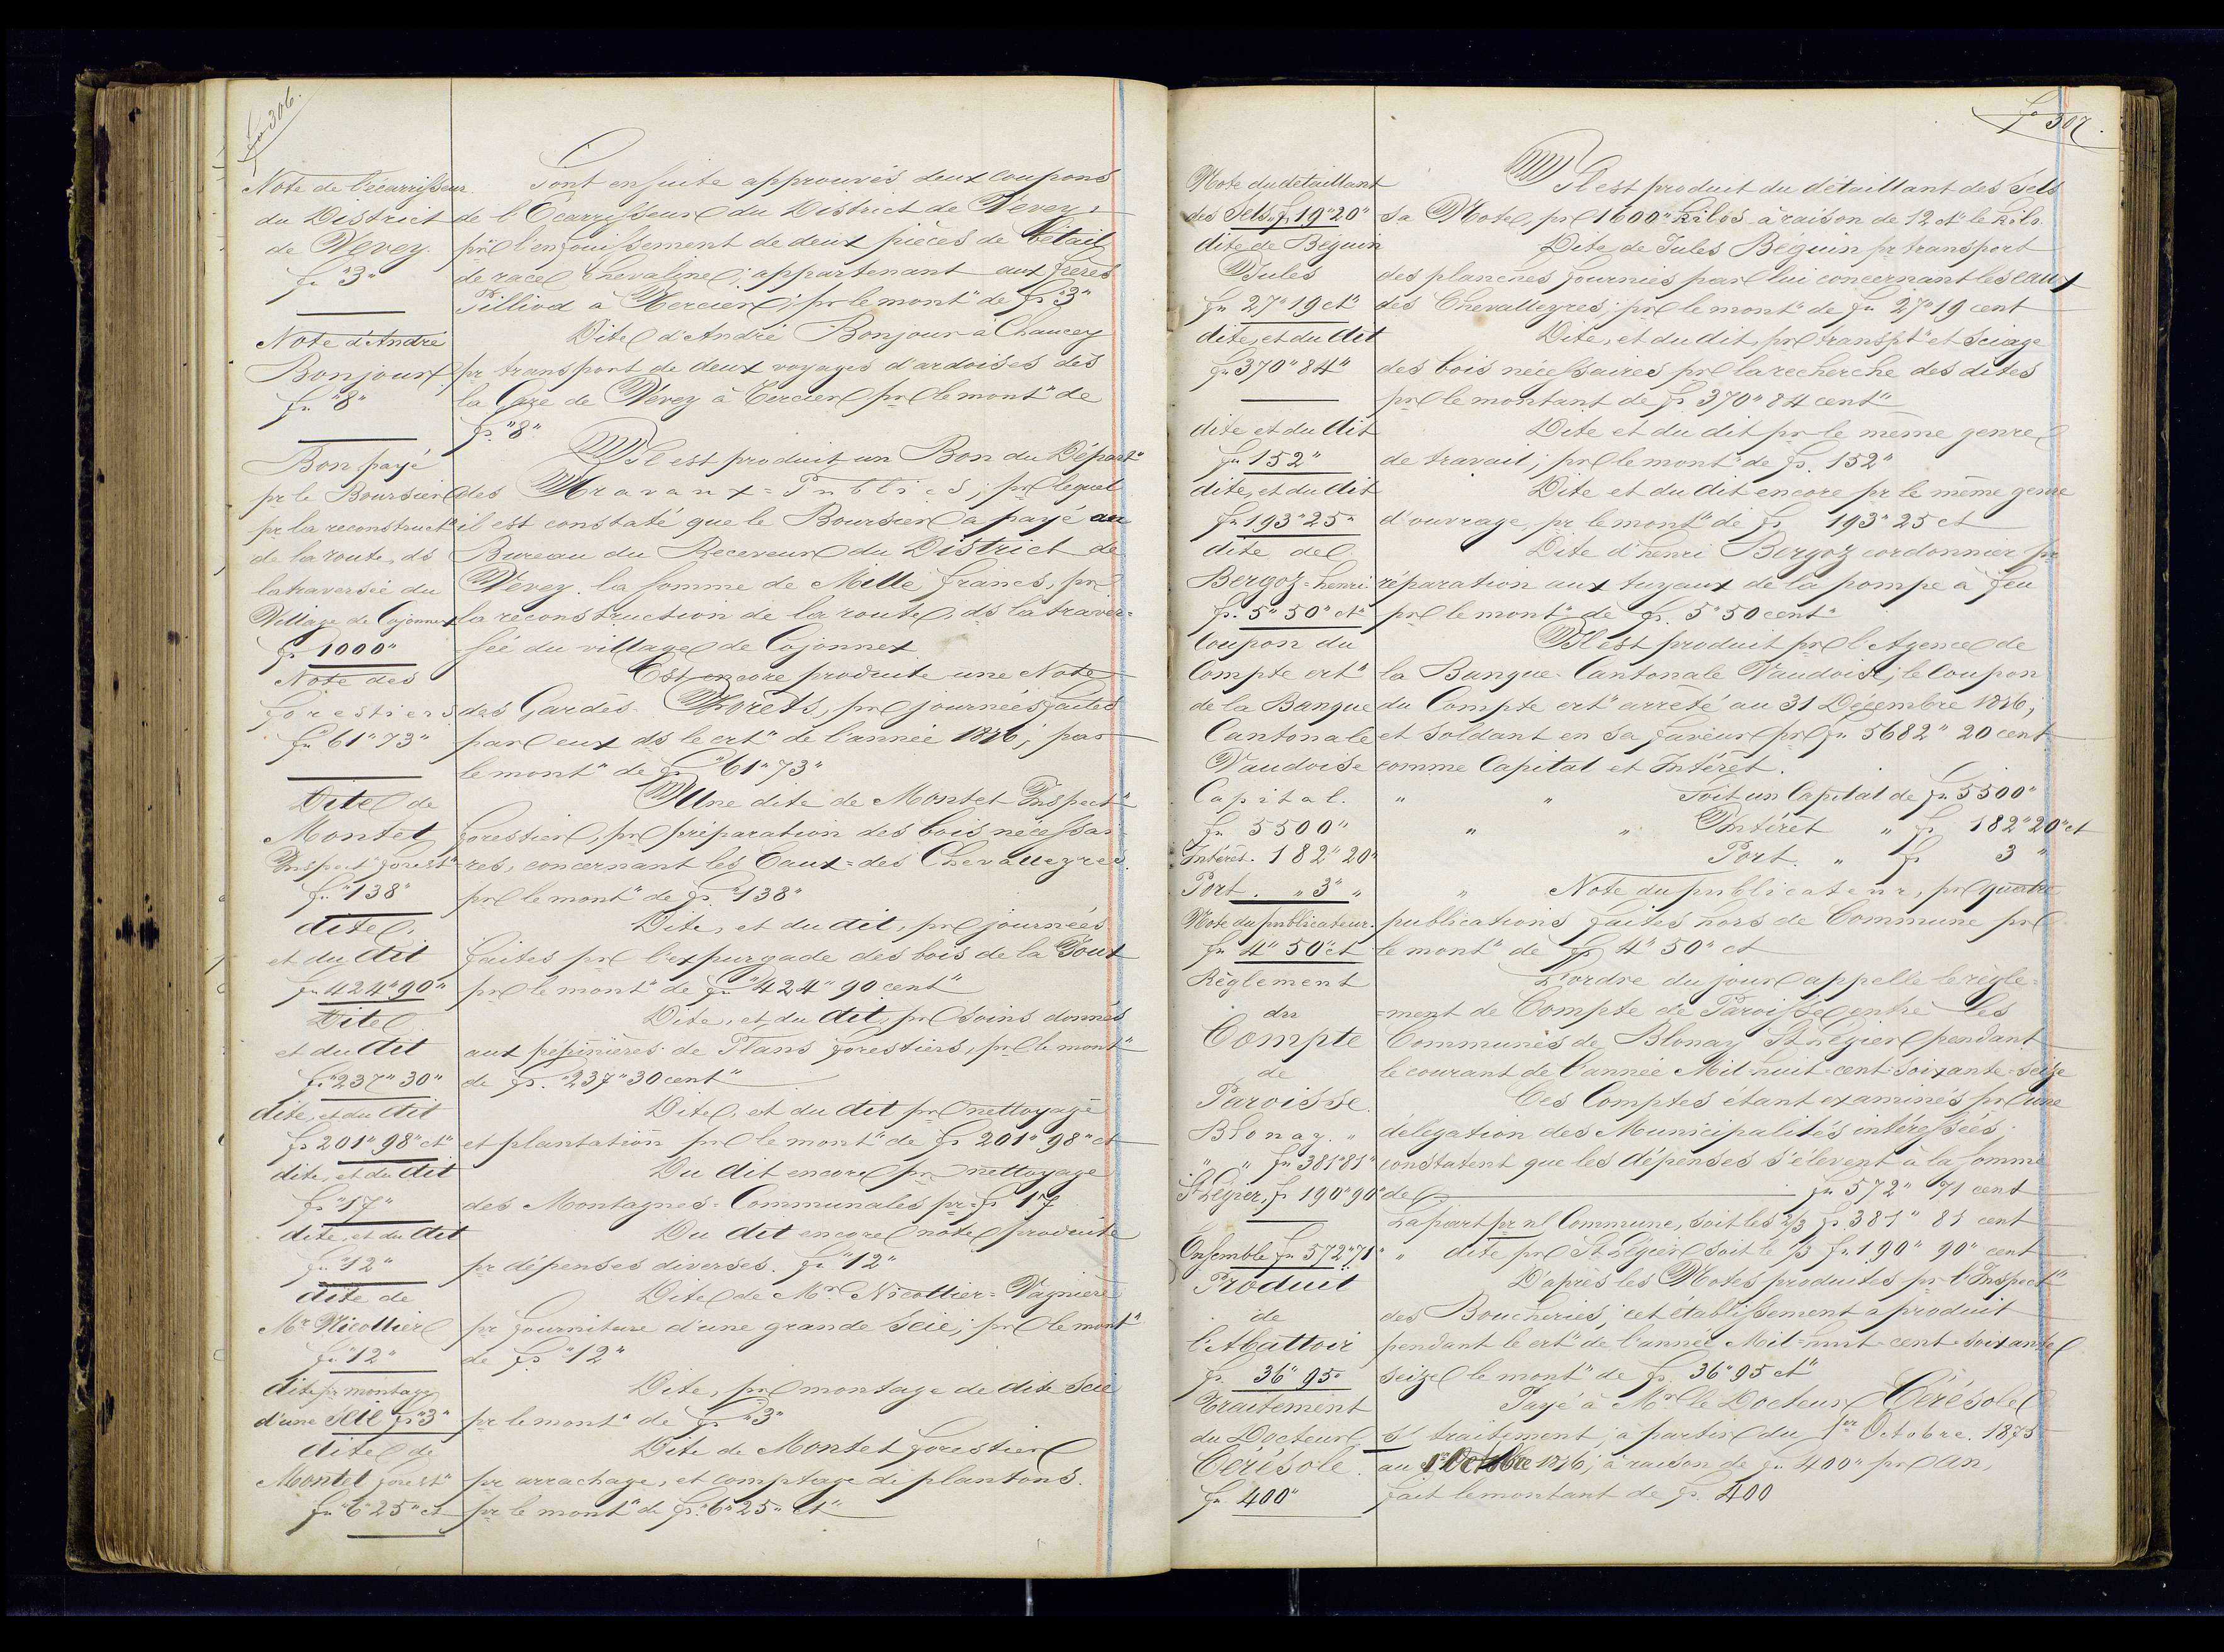 fo 306.
Note de l'écarrisseur
du District
de Vevey.
fr "3"
Sont ensuite approuvés deux coupons
de l'Ecarrisseur du District de Vevey,
pr l'enfouissement de deux pièces de bétail
de race Chevaline; appartenant aux frères
Pilliod à Mercier; pr le mont" de fr "3"
Note d'André
Bonjour
fr "8"
Dite d'André Bonjour à Chaucey
pr transport de deux voyages d'ardoises des
la Gare de Vevey à Cercier pr le mont" de
fr. "8"
Bon payé
pr le Boursier
pr la reconstruct"
de la route, ds
la traversée du
Village de Cojonnex
fr 1000"
Il est produit un Bon du Départ"
des Travaux=Publics; pr lequel
il est constaté que le Boursier a payé au
Bureau du Receveur du District de
Vevey. la somme de Mille francs, pr
la reconstruction de la route, ds la traver=
sée du village de Cojonnex
Note des
forestiers
fr "61"73"
Est encore produite une Note
des Gardes-Forêts, pr journées faites
par eux ds le crt" de l'année 1876; par
le mont" de fr "61"73"
Dite de
Montet
Inspect" forest"
fr. "138"
Une dite de Montet Inspect"
forestier, pr préparation des bois nécessai
=res, concernant les Eaux=des Chevalleyres
pr le mont" de fr. "138"
dite,
et du dit
fr 424"90"
Dite, et du dit, pr journées
faites pr l'expurgade des bois de la Tout
pr le mont" de fr "424" 90 cent"
Dite
et du dit
fr. "237"30"
Dite, et du dit, pr soins donnés
aux pépinières de Plans forestiers, pr le mont"
de fr. "237"30 cent"
dite, et du dit
fr 201"98"ct"
Dite, et du dit pr nettoyage
et plantation pr le mont" de fr 201"98"ct
dite, et du dit
fr "17"
Du dit encore pr nettoyage
des Montagnes=Communales pr fr 17
dite, et du dit
fr. "12"
Du dit encore note produite
pr dépenses diverses. fr "12"
dite de
Mr Nicollier
fr. "12"
Dite de Mr Nicollier=Vagnière
pr fourniture d'une grande Scie; pr le mont"
de fr "12"
dite pr montage
d'une scie fr "3"
Dite, pr montage de dite Scie
pr le mont" de fr "3"
dite de
Montet forest"
fr "6"25"ct
Dite de Montet forestier
pr arrachage, et comptage de plantons.
pr le mont" de fr. "6"25" ct"
fo 307.
Note du détaillant
des Sels fr 19"20"
Il est produit du détaillant des Sels
sa Note, pr 1600" kilos à raison de 12 ct" le kilo.
dite de Béguin
Jules
fr 27"19 ct"
Dite de Jules Béguin pr transport
des planches fournies par lui concernant les eaux
des Chevalleyres; pr le mont" de fr 27"19 cent
dite, et du dit
fr 370"84"
Dite, et du dit, pr transpt" et sciage
des bois nécessaires pr la recherche des dites
pr le montant de fr 370"84 cent"
dite et du dit
fr 152"
Dite et du dit pr le même genre
de travail; pr le mont" de fr. 152"
dite, et du dit
fr 193"25"
Dite et du dit encore pr le même genre
d'ouvrage, pr le mont" de fr 193"25 ct
dite de
Bergoz=henri
fr. 5"50"ct"
Dite d'henri Bergoz cordonnier, pr
réparation aux tuyaux de la pompe à feu
pr le mont" de fr. 5"50 cent"
Coupon du
Compte crt"
de la Banque
Cantonale
Vaudoise
Il est produit pr l'Agence de
la Banque-Cantonale Vaudoise; le coupon
du Compte crt" arrêté au 31 Décembre 1876;
et soldant en sa faveur pr fr 5682"20 cent
comme Capital et Intérêt.
Capital.
fr 5500"
Intérêt. 182"20"
Port. "3"
" " Soit un Capital de fr. 5500"
" " Intérêt " fr 182"20"ct
Port. " fr 3 "
Note du publicateur
fr 4"50"ct
" Note du publicateur, pr quatre
publications faites hors de Commune pr
le mont" de fr 4"50"ct
Règlement
du
Compte
de
Paroisse.
Blonay. "
" " fr 381"81"
St Légier, fr 190"90"
Ensemble fr 572"71"
L'ordre du jour appelle le règle=
=ment de Compte de Paroisse entre les
Communes de Blonay St Légier pendant
le courant de l'année Mil-huit-cent-soixante-seize
Ces Comptes étant examinés pr une
délégation des Municipalités intéressées;
constatent que les dépenses s'élèvent à la somme
de fr 572" 71 cent
La part pr nl Commune, soit les 2/3 fr. 381" 81 cent
" dite pr St Légier soit le 1/3 fr. 190" 90" cent
Produit
de
l'Abattoir
fr. 36"95"
D'après les Notes produites pr l'Inspect"
des Boucheries; cet établissement a produit
pendant le crt" de l'année Mil-huit-cent-soixante
seize le mont" de fr. 36"95 ct"
Traitement
du Docteur
Cérésole.
fr. 400"
Payé à Mr le Docteur Cérésole
st traitement, à partir du 1er Octobre. 1875
au 1r Octobre 1876; à raison de fr 400" pr an,
fait le montant de fr. 400